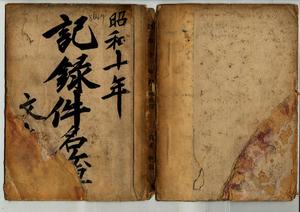 昭和十年
記録件名簿
文